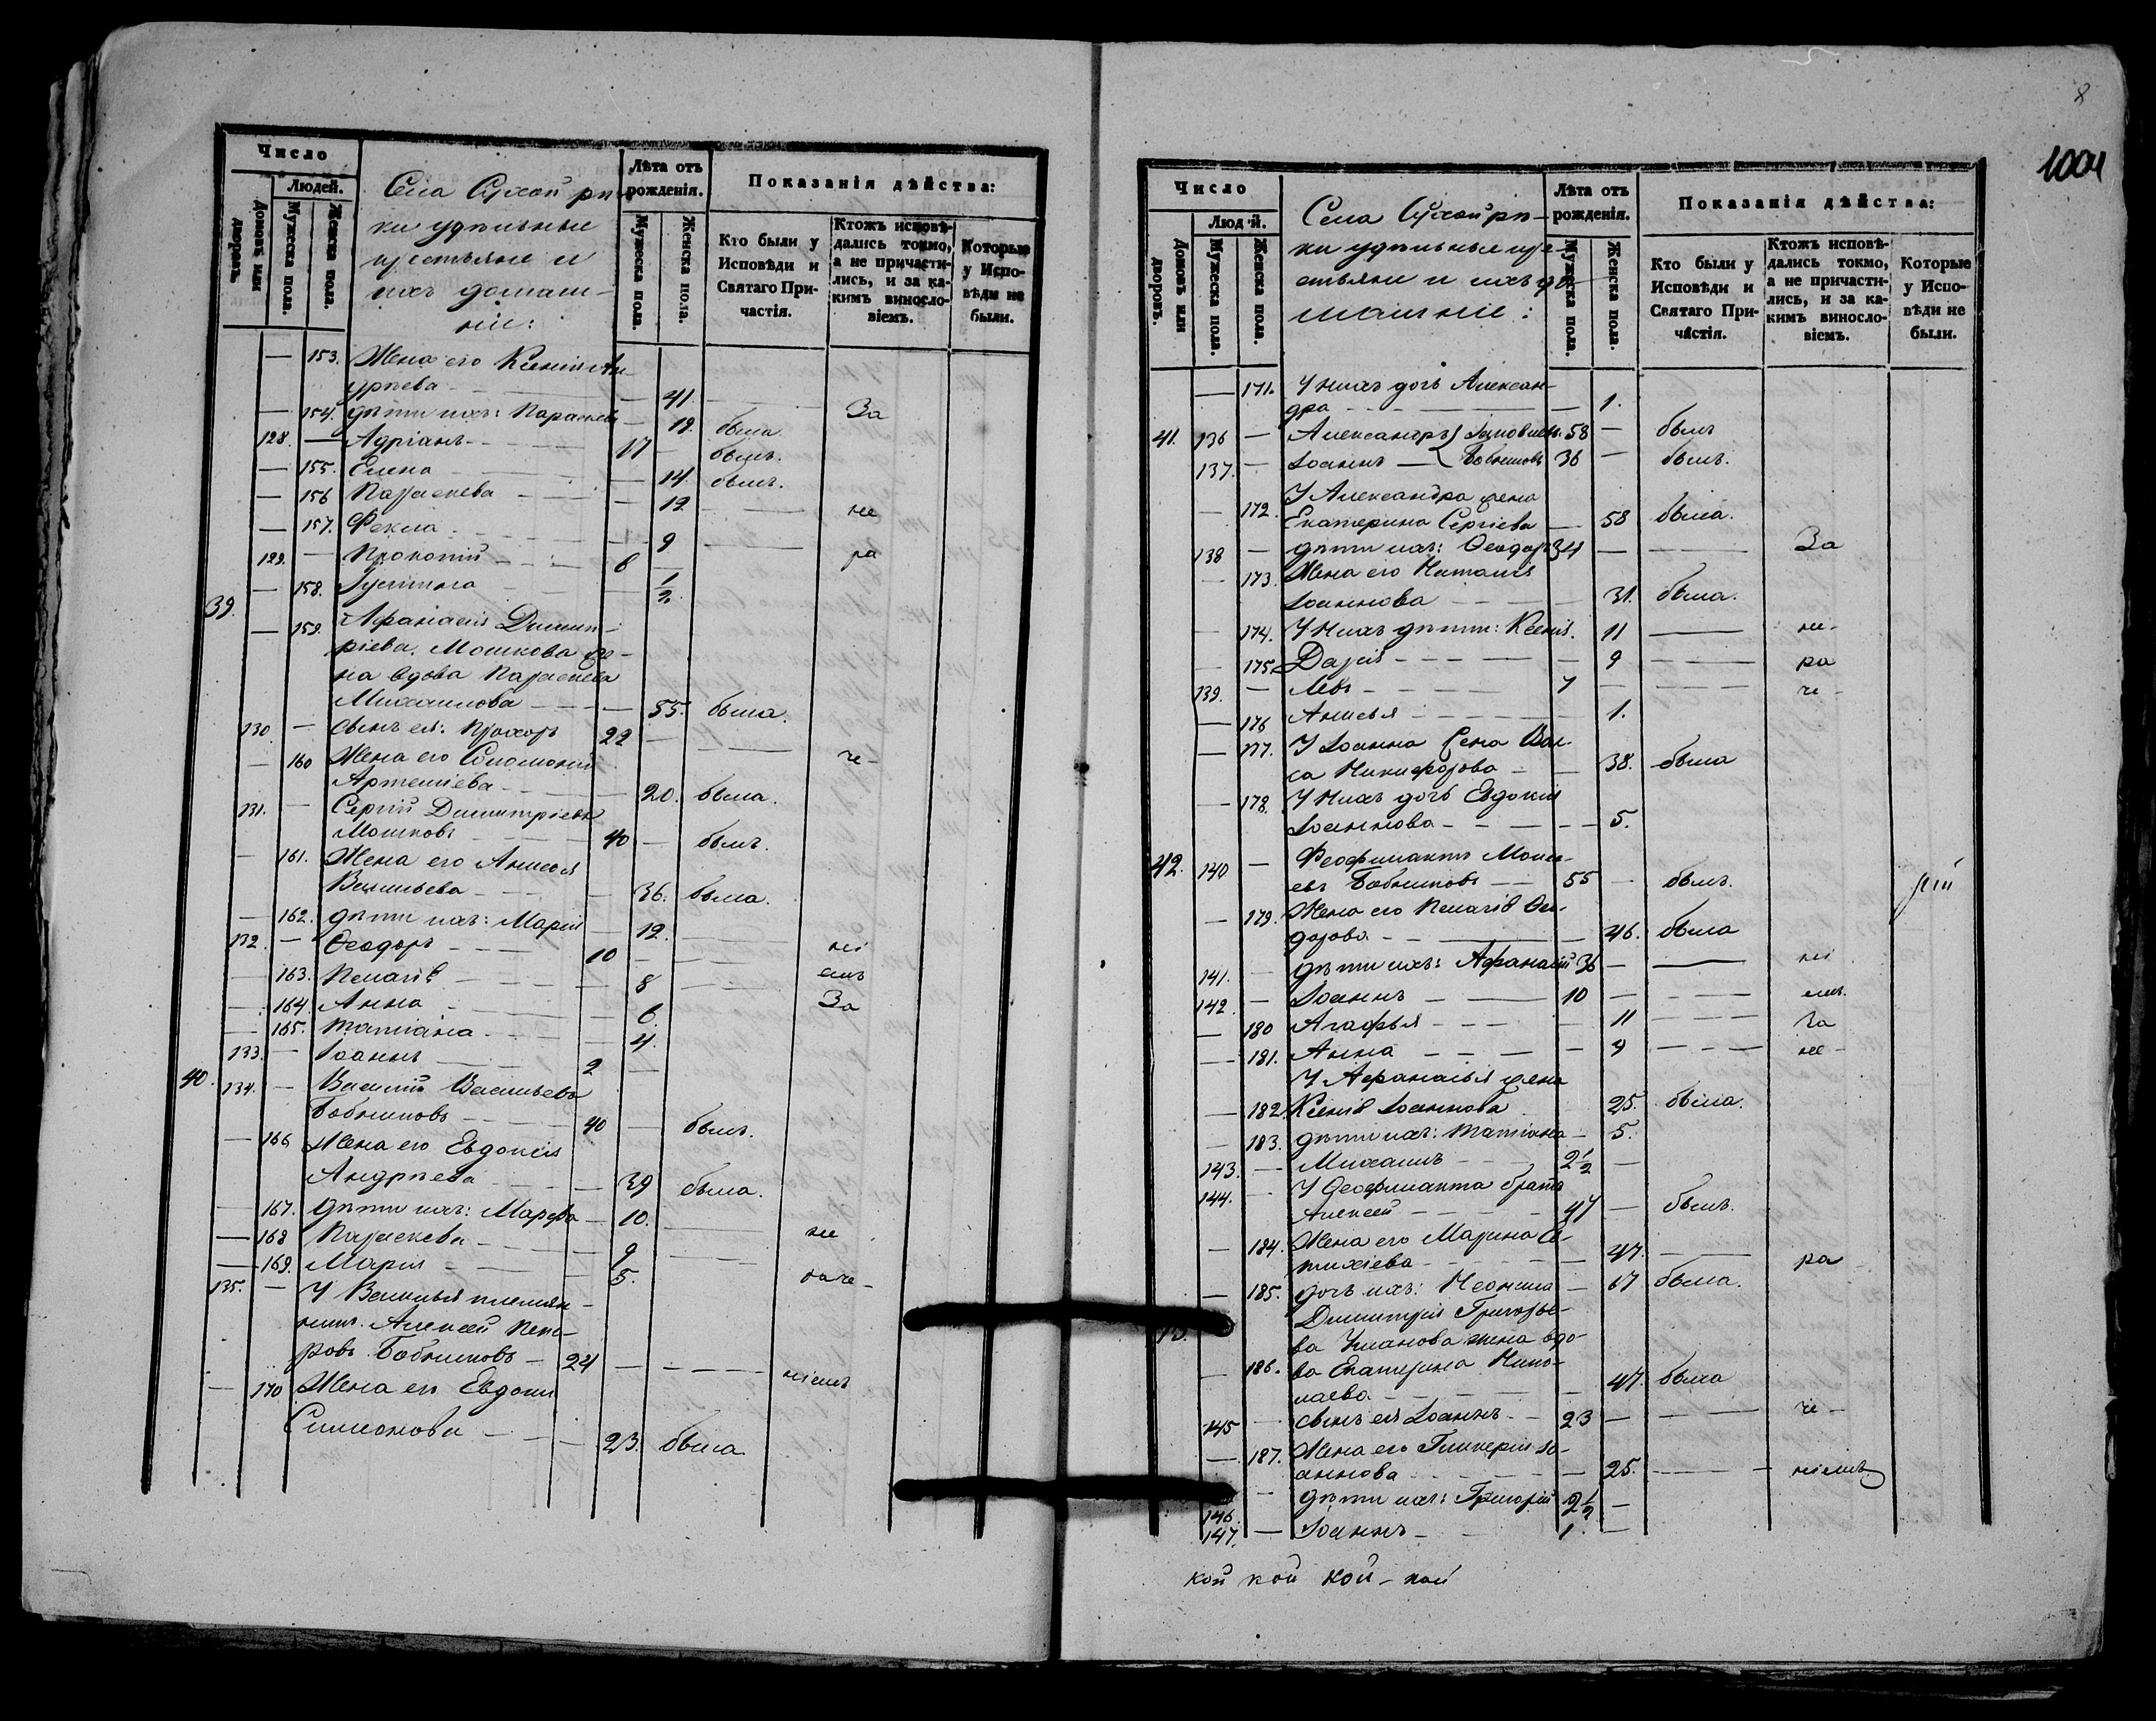 Число
Людей.
Домовъ или дворовъ.
Мужеска пола.
Женска пола.
Села Сухой рѣ-
ки удѣльные
крестьяне и
ихъ домаш-
ніе:
Лѣта отъ
рожденія.
Мужеска пола.
Женска пола.
Показанія дѣйства:
Кто были у
Исповѣди и
Святаго При-
частія.
Ктожъ исповѣ-
дались токмо,
а не причасти-
лись, и за ка-
кимъ винос­ло-
віемъ.
Которые
у Испо-
вѣди не
были.
— 153. Жена его Ксенія
— 41 —
— 154. дѣти ихъ: Параскева — 19. была. За
128. — Адріанъ — 17 — былъ.
— 155. Елена — 14.
— 156 Параскева — 12 — не
— 157. Фекла — 9 —
129. — Прокопій — 6 — ра
— 158. Іустина — 1/2
39. — 159. Афанасія Димит-
ріева Мошкова же-
на вдова Параскева
Михаилова — 55. была.
130. — сынъ ея: Прохоръ 22 — че-
— 160 Жена его Соломонія
Артеміева — 20. была.
131. — Сергій Димитріевъ
Мошковъ 40 — былъ.
— 161. Жена его Анисья
Васильева — 36. была.
— 162. дѣти ихъ: Марія — 12.
132. — Ѳеодоръ — 10 — ні
— 163. Пелагія — 8 — емъ
— 164. Анна — 6. За
— 165. Татіана — 4.
133. — Іоаннъ — 2 —
40. 134. — Василій Васильевъ
Бобыльковъ — 40 — былъ.
— 166 Жена его Евдокія
Андреева — 39 была.
— 167. дѣти ихъ: Марѳа — 10. — не
— 168 Параскева — 9
— 169. Марія — 5. раче-
135. — У Василья племян-
никъ Алексей Пет-
ровъ Бобыльковъ — 24 — ніемъ
— 170 Жена его Евдокія
Симеонова — 23. была
8
1004
Число
Людей.
Домовъ или дворовъ.
Мужеска пола.
Женска пола.
Села Сухой рѣ-
ки удѣльные кре-
стьяне и ихъ до-
машніе:
Лѣта отъ
рожденія.
Мужеска пола.
Женска пола.
Показанія дѣйства:
Кто были у
Исповѣди и
Святаго При-
частія.
Ктожъ исповѣ-
дались токмо,
а не причасти-
лись, и за ка-
кимъ винос­ло-
віемъ.
Которые
у Испо-
вѣди не
были.
— 171. У нихъ дочь Алексан-
дра — 1.
41. 136 — Александръ Іаковлевъ 58 — былъ
137. — Іоаннъ — 36 — былъ.
У Александра жена
— 172. Екатерина Сергіева — 58 была.
138 — дѣти ихъ: Ѳеодоръ 34 — За
— 173. Жена его Наталія
Іоаннова — 31. была.
— 174. У нихъ дѣти: Ксенія. 11 — не-
— 175. Дарія — 9 — ра
139. — Левъ — 7 — че-
— 176 Анисья — 1.
— 177. У Іоанна жена Вас-
са Никифорова — 38. была
— 178. У нихъ дочь Евдокія
Іоаннова — 5.
42. 140 — Феофилактъ Моисе-
евъ Бобыльковъ — 55 — былъ.
— 179. Жена его Пелагія Ѳео-
дорова — 46. была
141. — дѣти ихъ: Афанасій 36 — ні
142. — Іоаннъ — 10 — емъ.
— 180 Агафья — 11 — За
— 181. Анна — 9 — не-
У Афанасья жена
— 182. Ксенія Іоаннова 25. была.
— 183. дѣти ихъ: Татіана — 5.
143. — Михаилъ — 2 1/2 —
144. — У Ѳеофилакта братъ
Алексей — 47 — былъ.
— 184. Жена его Марина
— 47. — ра
— 185. дочь ихъ: Неонила — 17 была.
Димитрія Григорье-
ва Уланова жена вдо-
— 186. ва Екатерина Нико-
лаева — 47. была
145 — сынъ ея Іоаннъ — 23 — че-
— 187. Жена его Гликерія Іо-
аннова — 25. — ніемъ
146. — дѣти ихъ: Григорій 2 1/2 —
147. — Іоаннъ — 1. —
кой кой кой-кой